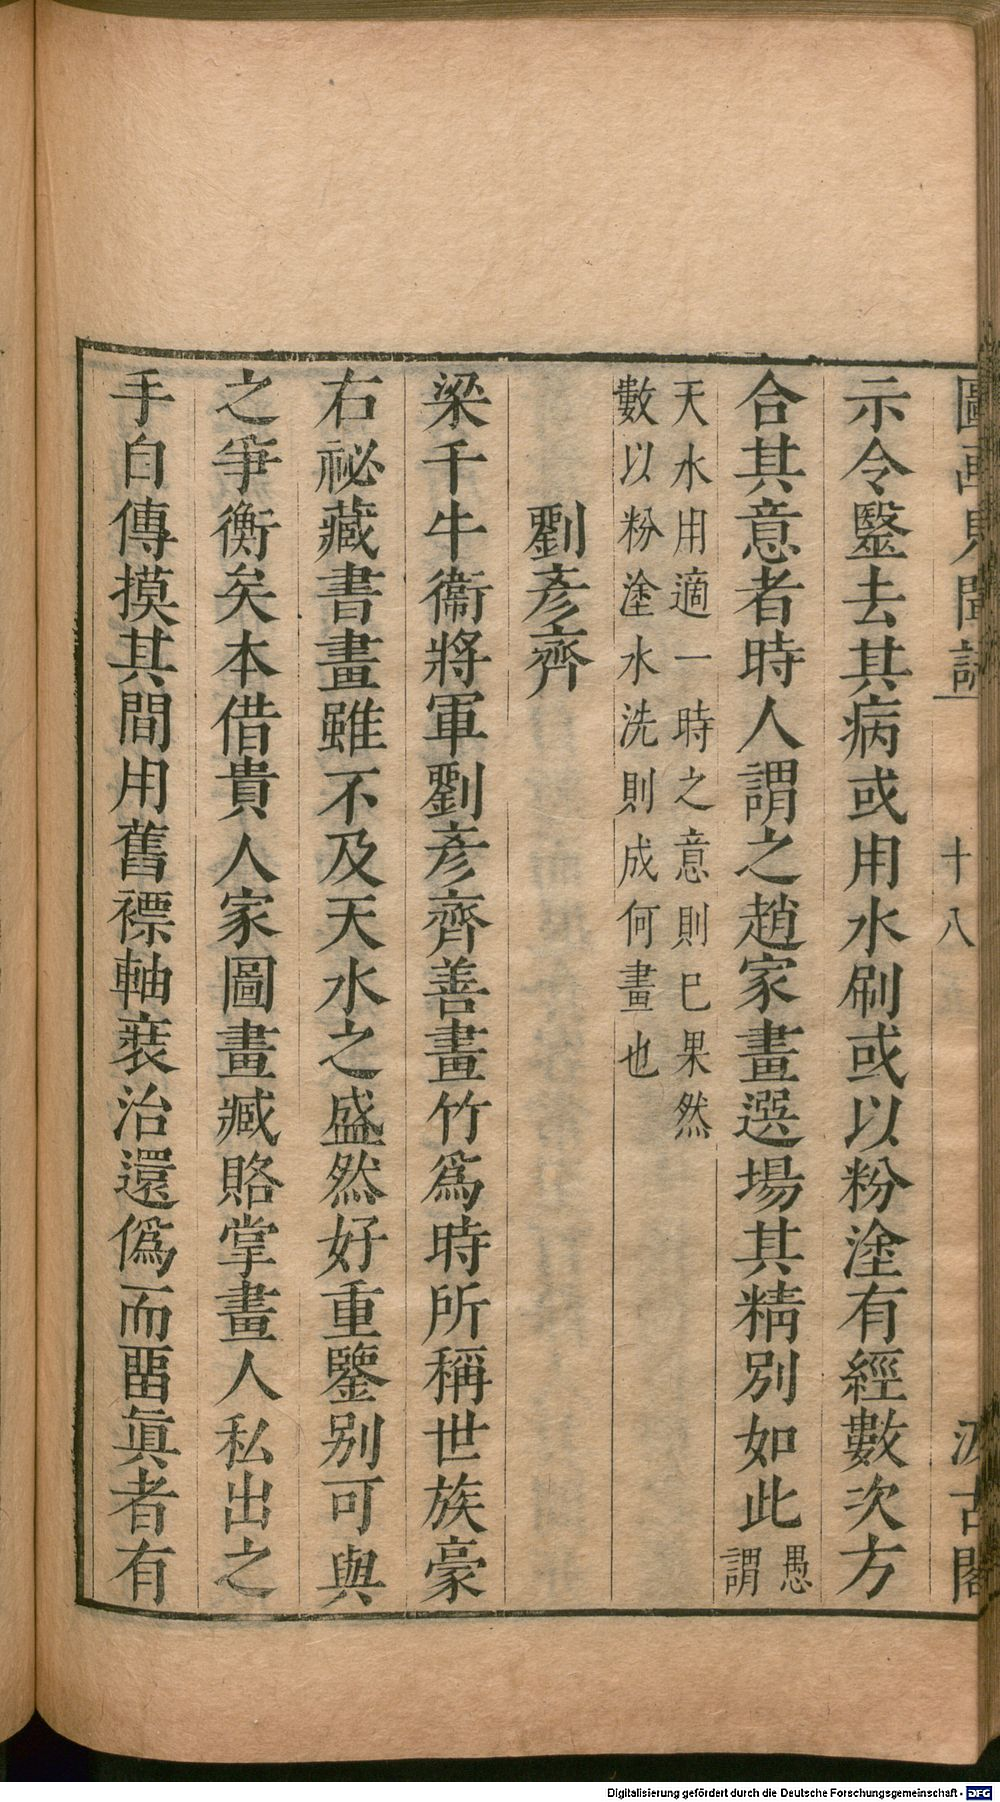 圖畫見聞誌 十八 汲古閣
示令毉去其病或用水刷或以粉塗有經數次方
合其意者時人謂之趙家畫選場其精別如此愚謂
天水用適一時之意則巳果然
數以粉塗水洗則成何畫也
劉彥齊
梁千牛衞將軍劉彥齊善畫竹爲時所稱世族豪
右祕藏書畫雖不及天水之盛然好重鑒別可與
之爭衡矣本借貴人家圖畫臧賂掌畫人私出之
手自傳摸其間用舊褾軸裝治還僞而畱眞者有
Digitalisierung gefördert durch die Deutsche Forschungsgemeinschaft - DFG